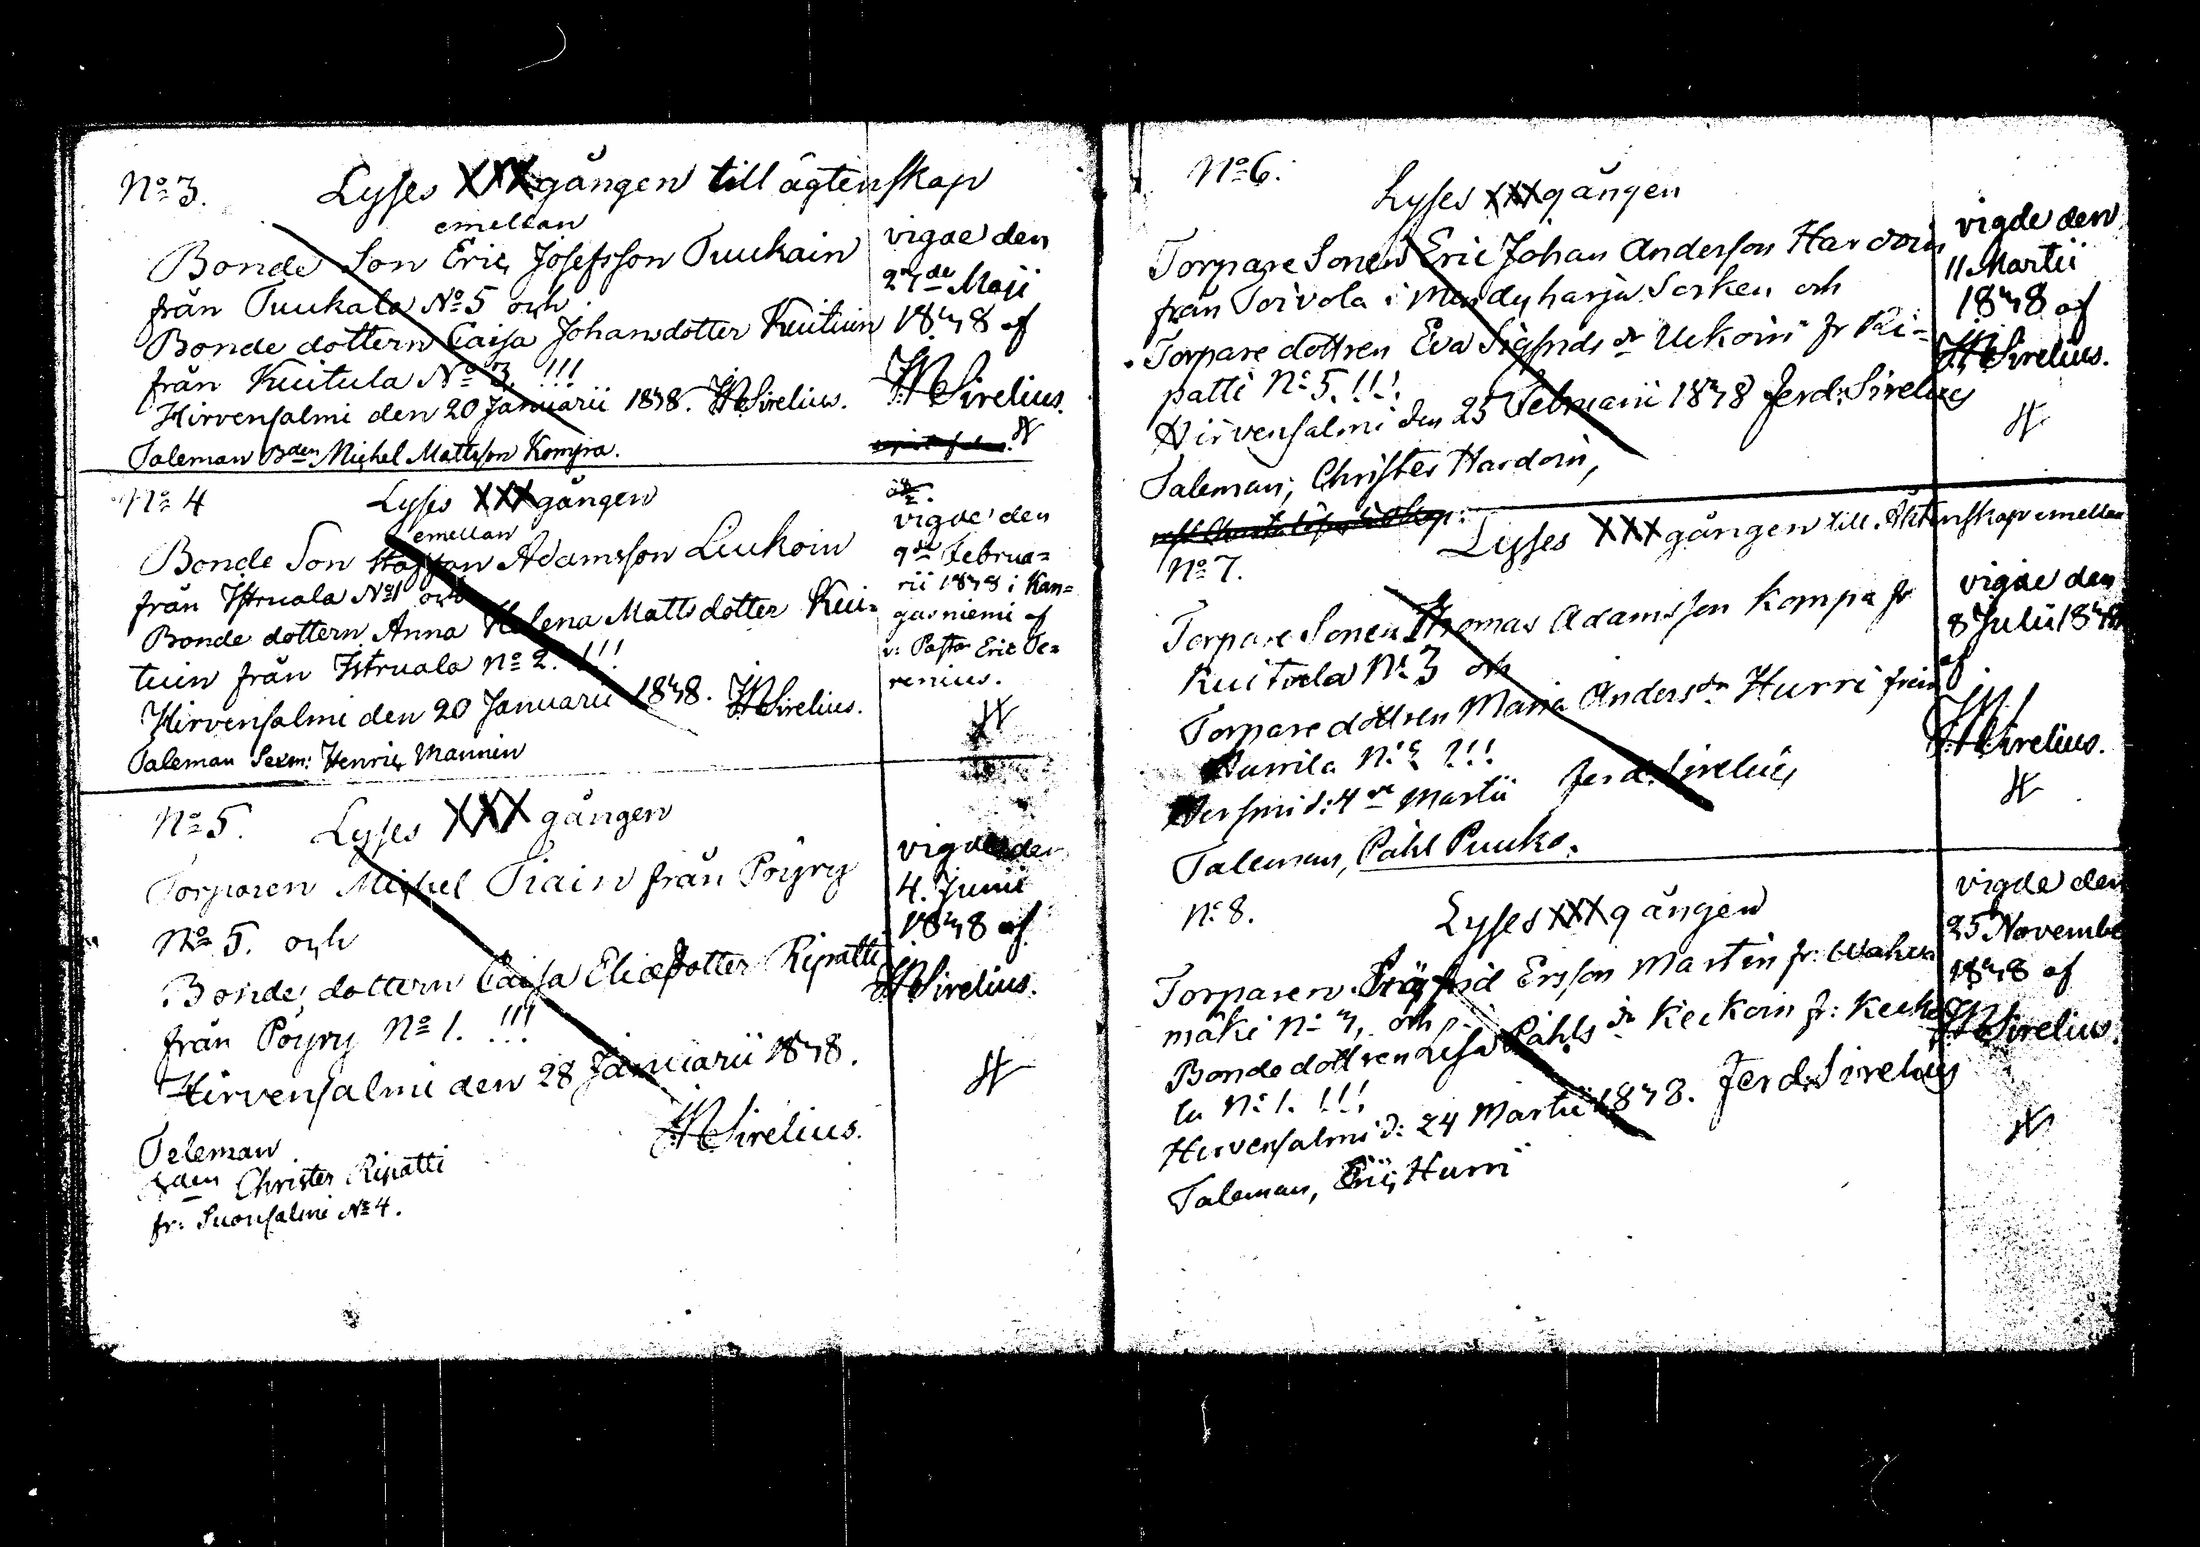 No 3. Lyses XXX gången till ägtenskap
emellan
Bonde Son Eric Josefsson Tuukain
från Tuukala No 5 och
Bonde dottern Caisa Johansdotter Kuituin
från Kuitula No 3. !!!
Hirvensalmi den 20 Januarii 1848. Sirelius.
Taleman Bden Michel Mattsson Kompa.
vigde den
27de Maji
1848 af
Sirelius.
No 4 Lyses XXX gången
emellan
Bonde Son Staffan Adamsson Liukoin
från Istruala No 1 och
Bonde dottern Anna Helena Mattsdotter Kui=
tuin från Istruala No 2. !!!
Hirvensalmi den 20 Januarii 1848. Sirelius.
Taleman Sexm: Henric Mannin
vigde den
9de Februa=
rii 1848 i Kan=
gasniemi af
v: Pastor Eric Te=
renius.
No 5. Lyses XXX gången
Torparen Michel Tiain från Pöyry
No 5. och
Bonde dottern Caisa Eliædotter Ripatti
från Pöyry No 1. !!!
Hirvensalmi den 28 Januarii 1848.
Sirelius.
Taleman
Bden Christer Ripatti
fr: Suonsalmi No 4.
vigde den
4. Junii
1848 af
Sirelius.
No 6.
Lyses XXX gången
Torpare Sonen Eric Johan Anderson Hardoin
från Toivola i Mändyharju Socken och
Torpare dottren Eva Sigfrids dr Uckoin fr Ri=
patti No 5. !!!
Hirvensalmi den 25 Februarii 1848 Ferd: Sirelius
Taleman, Christer Hardoin,
vigde den
11 Martii
1848 af
Sirelius.
Lyses XXX gången till Äktenskap emellan
No 7.
Torpare Sonen Thomas Adamsson Kompa fr
Kuitula No 3 och
Torpare dottren Maria Anders dr Hurri från
Hurrila No !!!
d: 4de Martii Ferd: Sirelius
Taleman, Påhl Puuko.
vigde den
8 Julii 1848
af
Sirelius.
No 8. Lyses XXX gången
Torparen Sigfrid Ersson Martin fr:
mäki No 4, och
Bonde dottren Lisa Påhls dr Keckoin fr: Kecko
la No 1. !!!
Hirvensalmi d: 24 Martii 1848. Ferd: Sirelius
Taleman, Eric Hurri
vigde den
25 Novembe
1848 af
Sirelius.